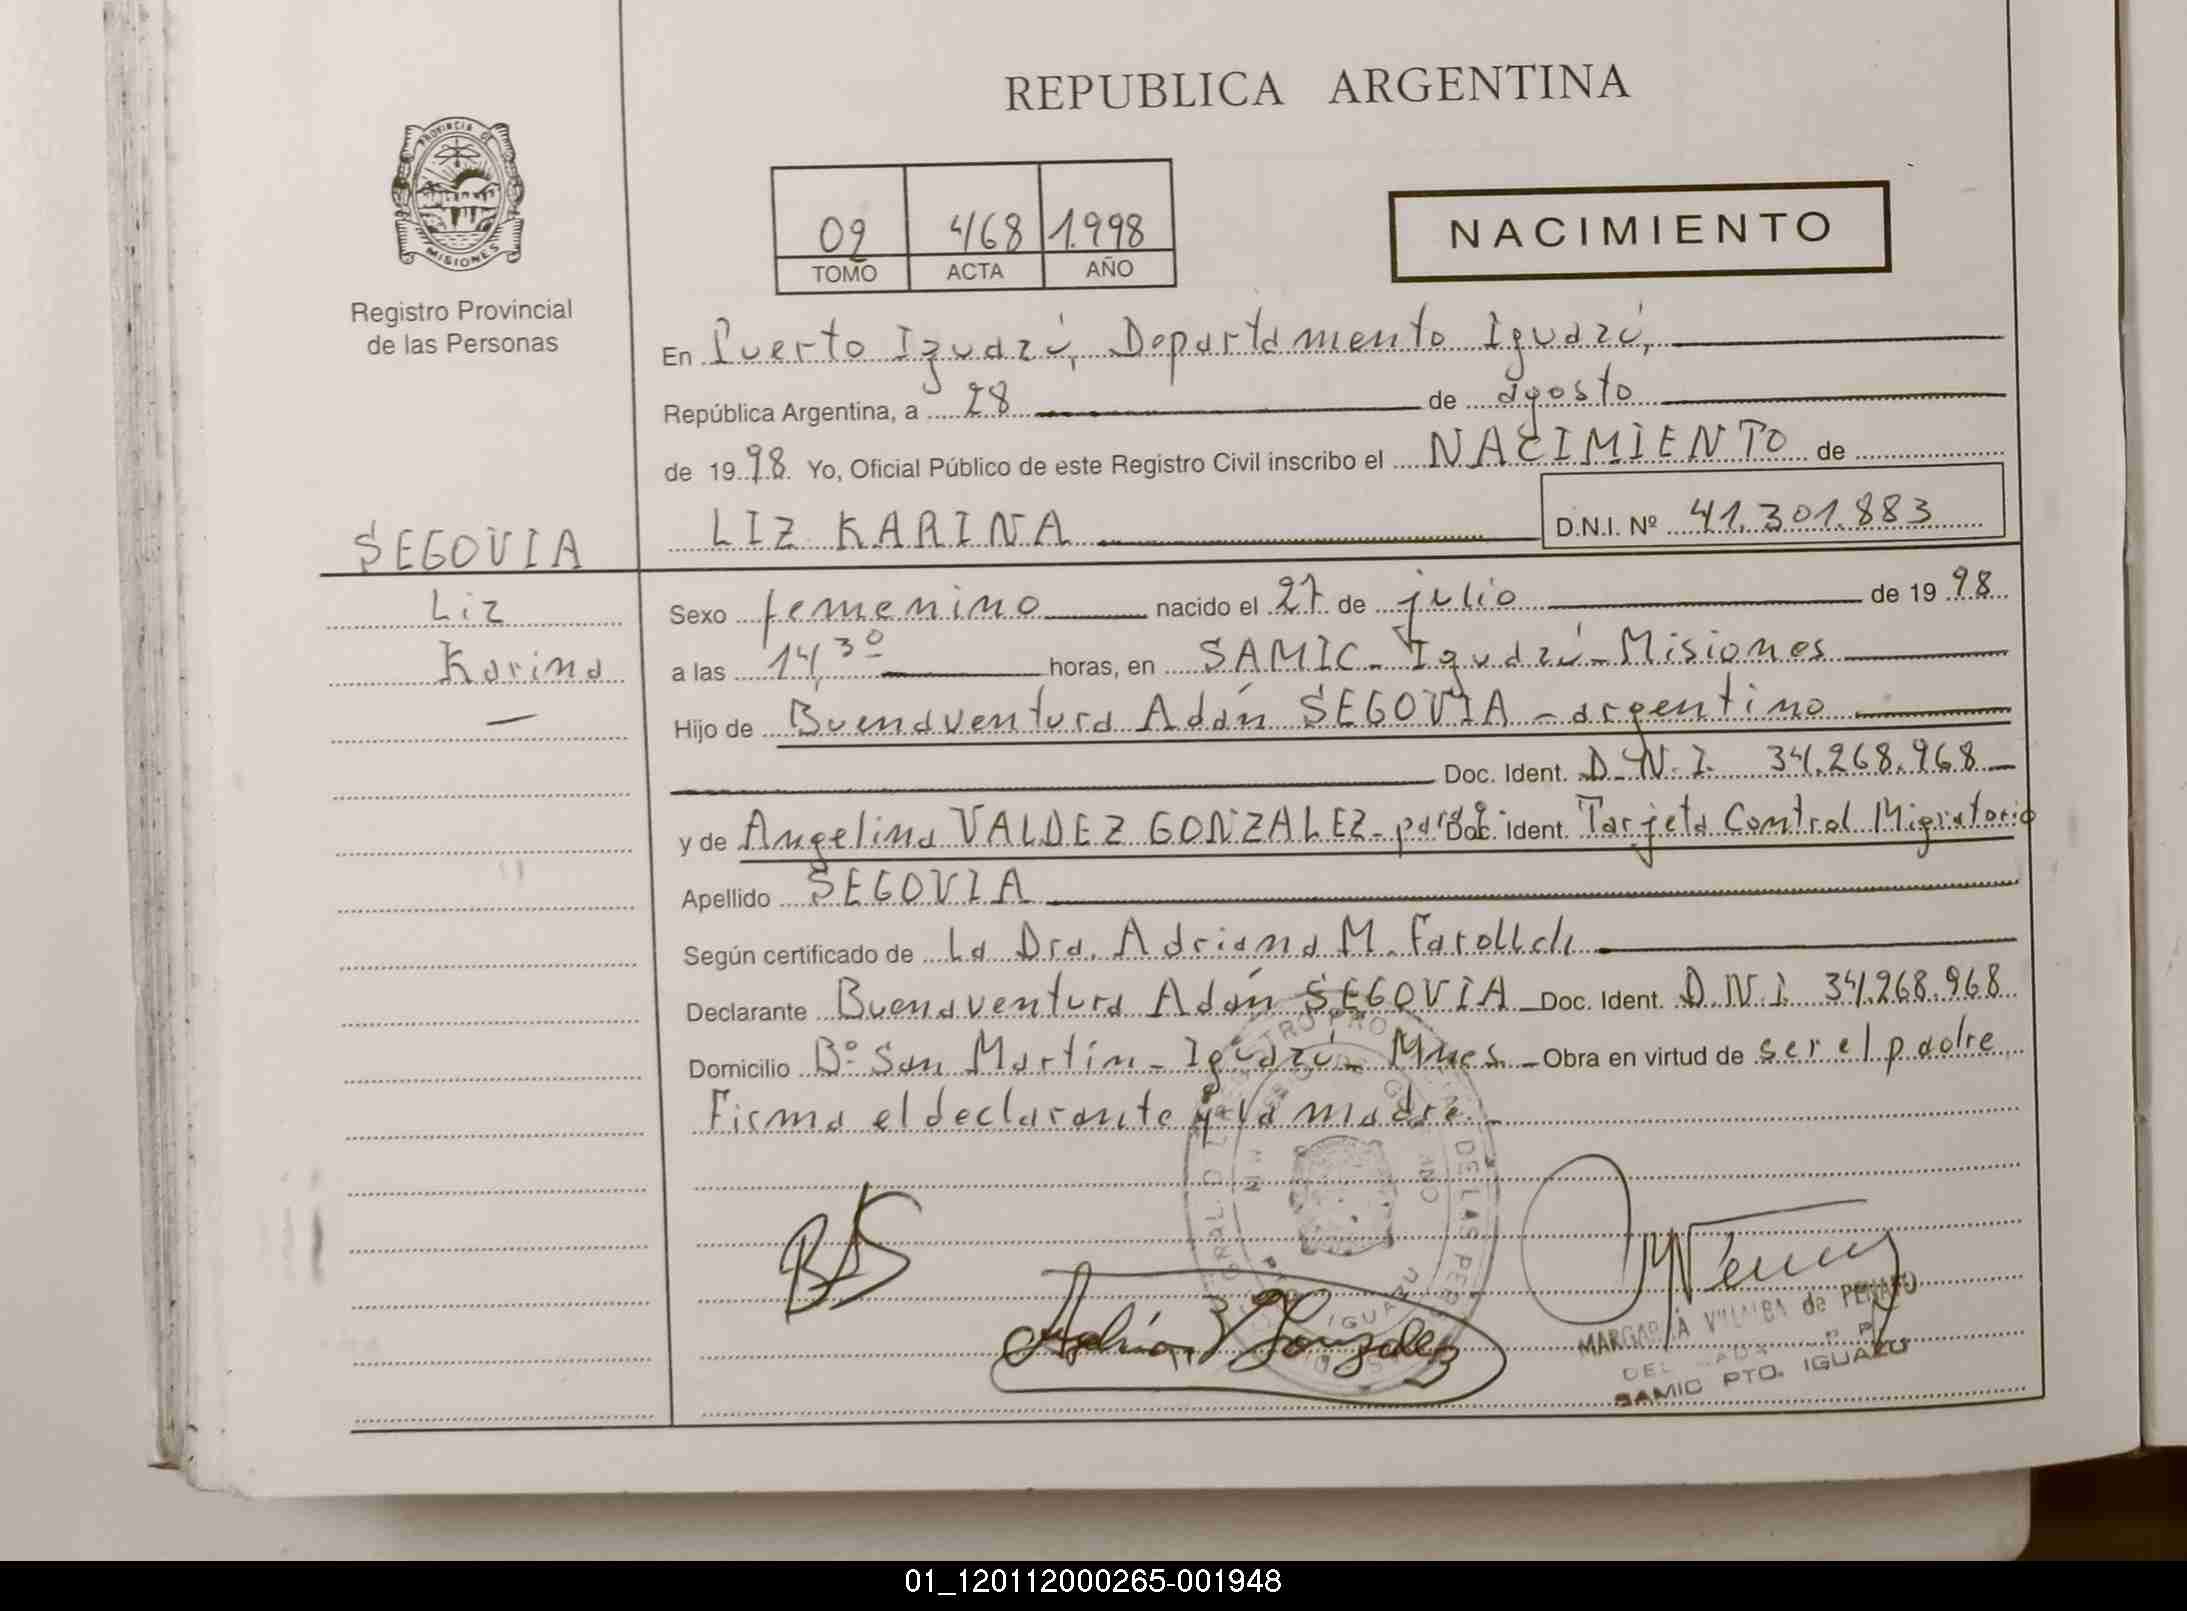 REPUBLICA ARGENTINA
PROVINCIA DE
MISIONES
Registro Provincial
de las Personas
02 468 1.998
TOMO ACTA AÑO
NACIMIENTO
En Puerto Iguazú, Departamento Iguazú,
República Argentina, a 28 de agosto
de 1998. Yo, Oficial Público de este Registro Civil inscribo el NACIMIENTO de
LIZ KARINA D.N.I. Nº 41.301.883
SEGOVIA
Liz
Karina
Sexo femenino nacido el 27 de julio de 1998
a las 14,30 horas, en SAMIC - Iguazú - Misiones
Hijo de Buenaventura Adán SEGOVIA - argentino
Doc. Ident. D.N.I. 34.268.968
y de Angelina VALDEZ GONZALEZ - Doc. Ident. Tarjeta Control Migratorio
Apellido SEGOVIA
Según certificado de La Dra. Adriana M.
Declarante Buenaventura Adán SEGOVIA - Doc. Ident. D.N.I. 34.268.968
Domicilio Bº San Martín - Iguazú - Mnes - Obra en virtud de ser el padre
Firma el declarante y la madre.-
BAS
IGUAZU
MARGARITA VILLALBA de PENAYO
SAMIC PTO. IGUAZU
01_120112000265-001948